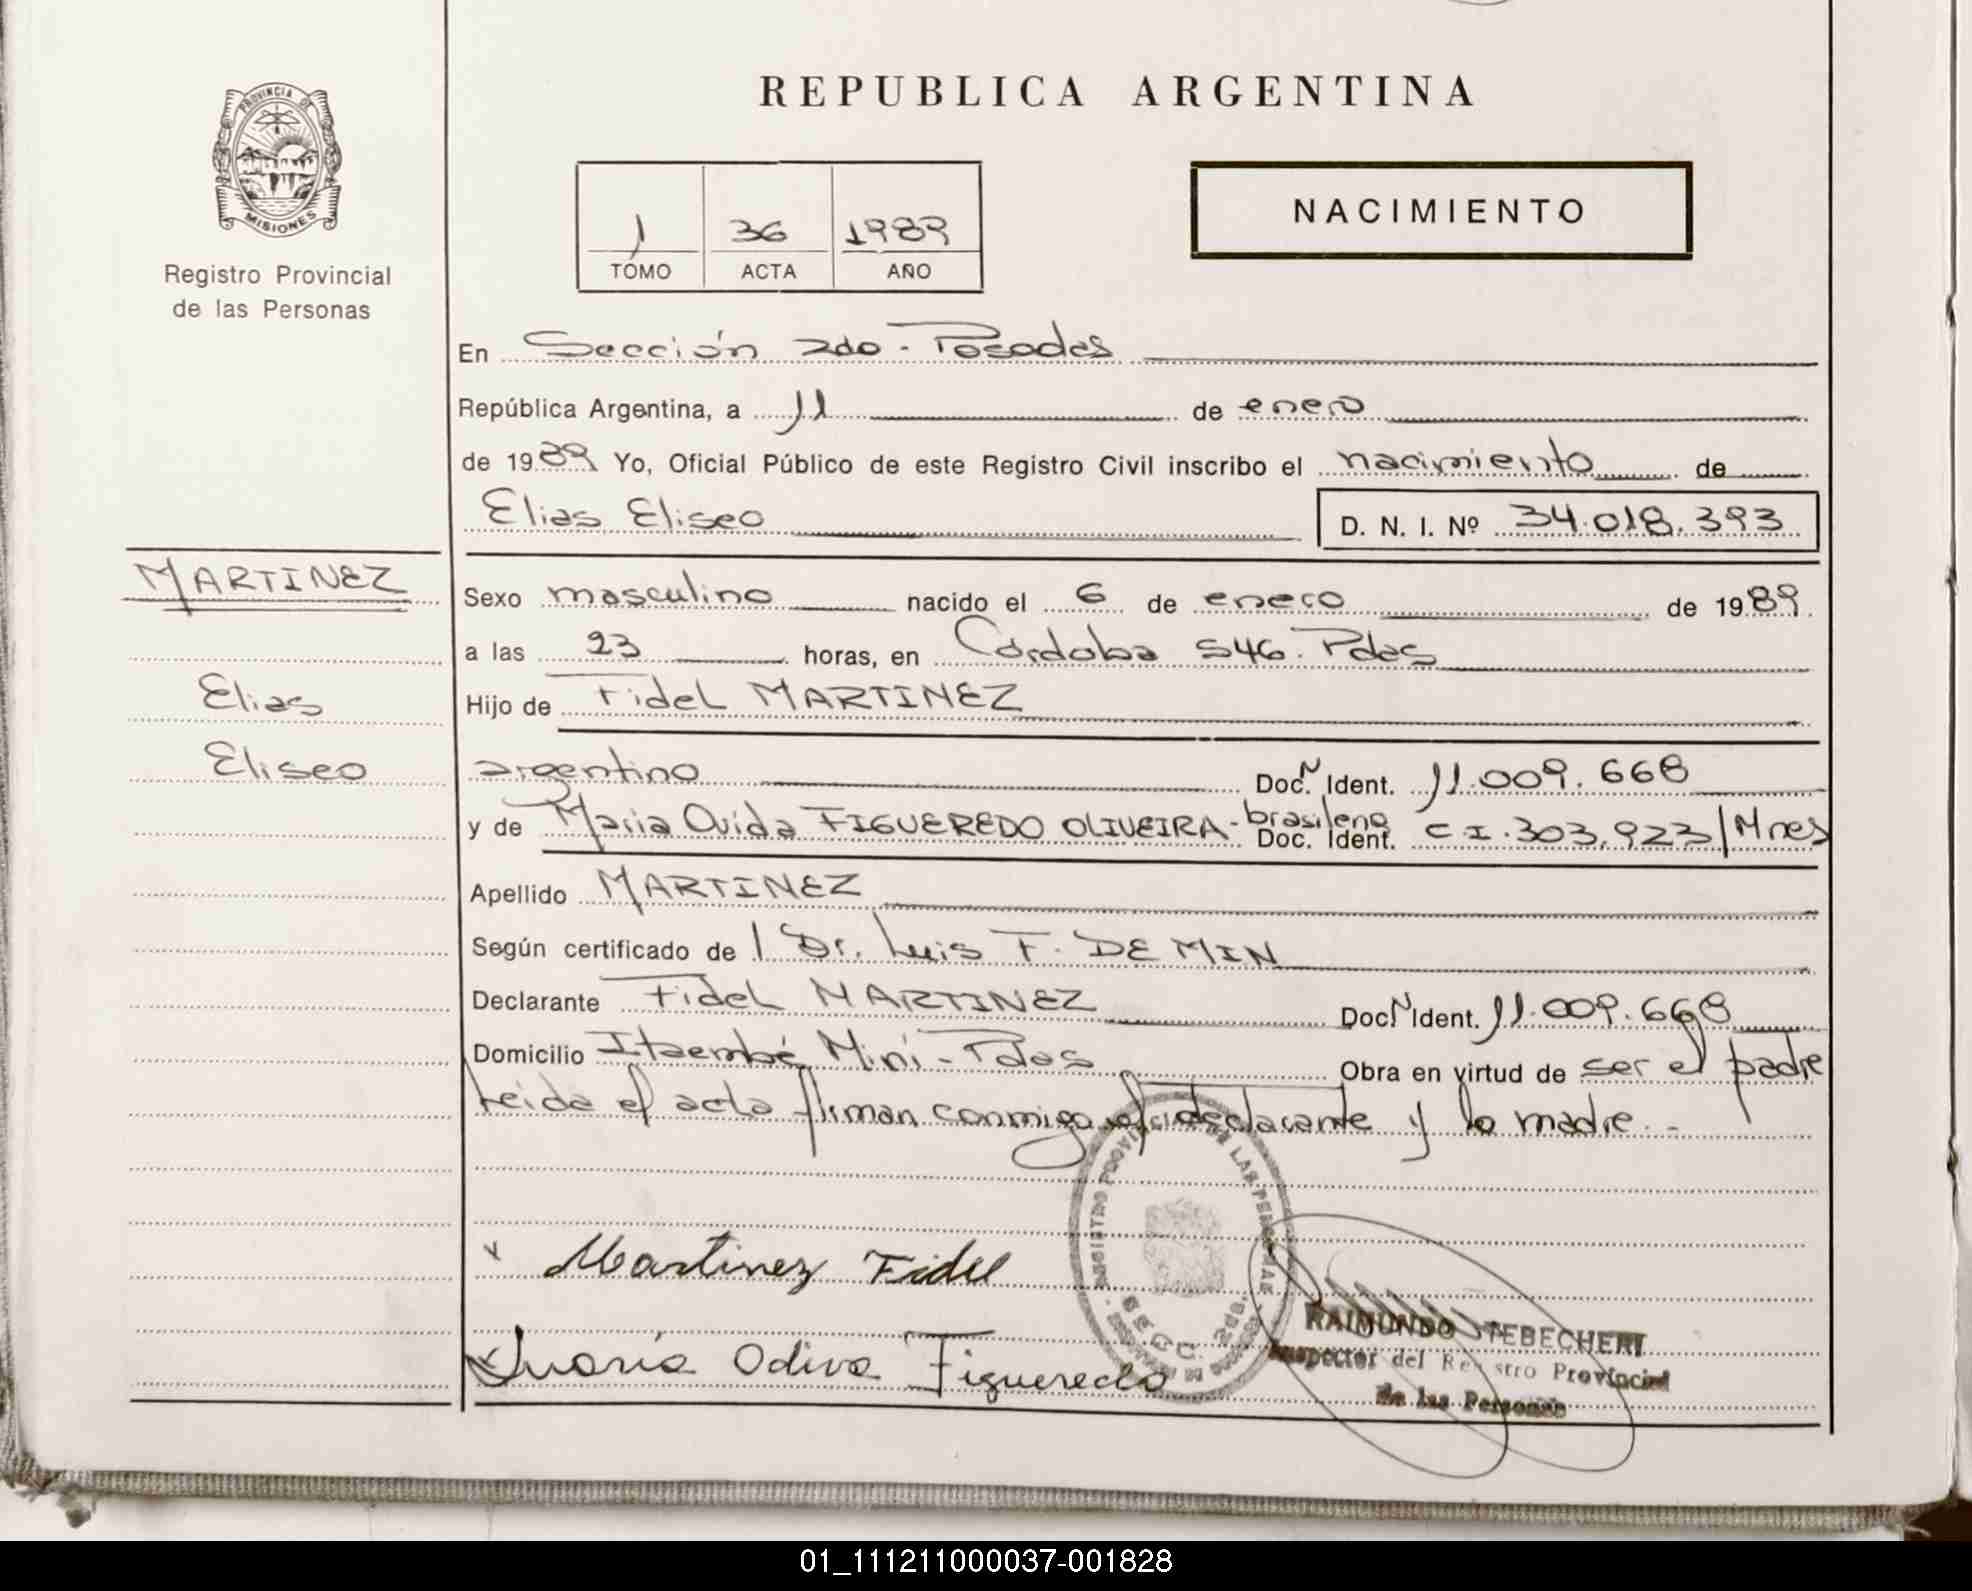 PROVINCIA DE
MISIONES
Registro Provincial
de las Personas
REPUBLICA ARGENTINA
1 36 1989
TOMO ACTA AÑO
NACIMIENTO
En Sección 2da - Posadas
República Argentina, a 11 de enero
de 1989 Yo, Oficial Público de este Registro Civil inscribo el nacimiento de
Elias Eliseo D. N. I. Nº 34.018.393
MARTINEZ
Elias
Eliseo
Sexo masculino nacido el 6 de enero de 1989
a las 23 horas, en Córdoba 546. Pdas
Hijo de Fidel MARTINEZ
argentino Doc. N Ident. 11.009.668
y de Maria Ovida FIGUEREDO OLIVEIRA - brasilena Doc. Ident. C.I. 303.923/Mnes
Apellido MARTINEZ
Según certificado de l Dr. Luis F. DE MIN
Declarante Fidel MARTINEZ Doc. N Ident. 11.009.668
Domicilio Itaembé Miní - Pdas Obra en virtud de ser el padre
Leida el acta firman conmigo el declarante y la madre. -
x Martinez Fidel
x Maria Odiva Figueredo
SECC. 2da.
RAIMUNDO STEBECHERT
Inspector del Registro Provincial
de las Personas
01_111211000037-001828